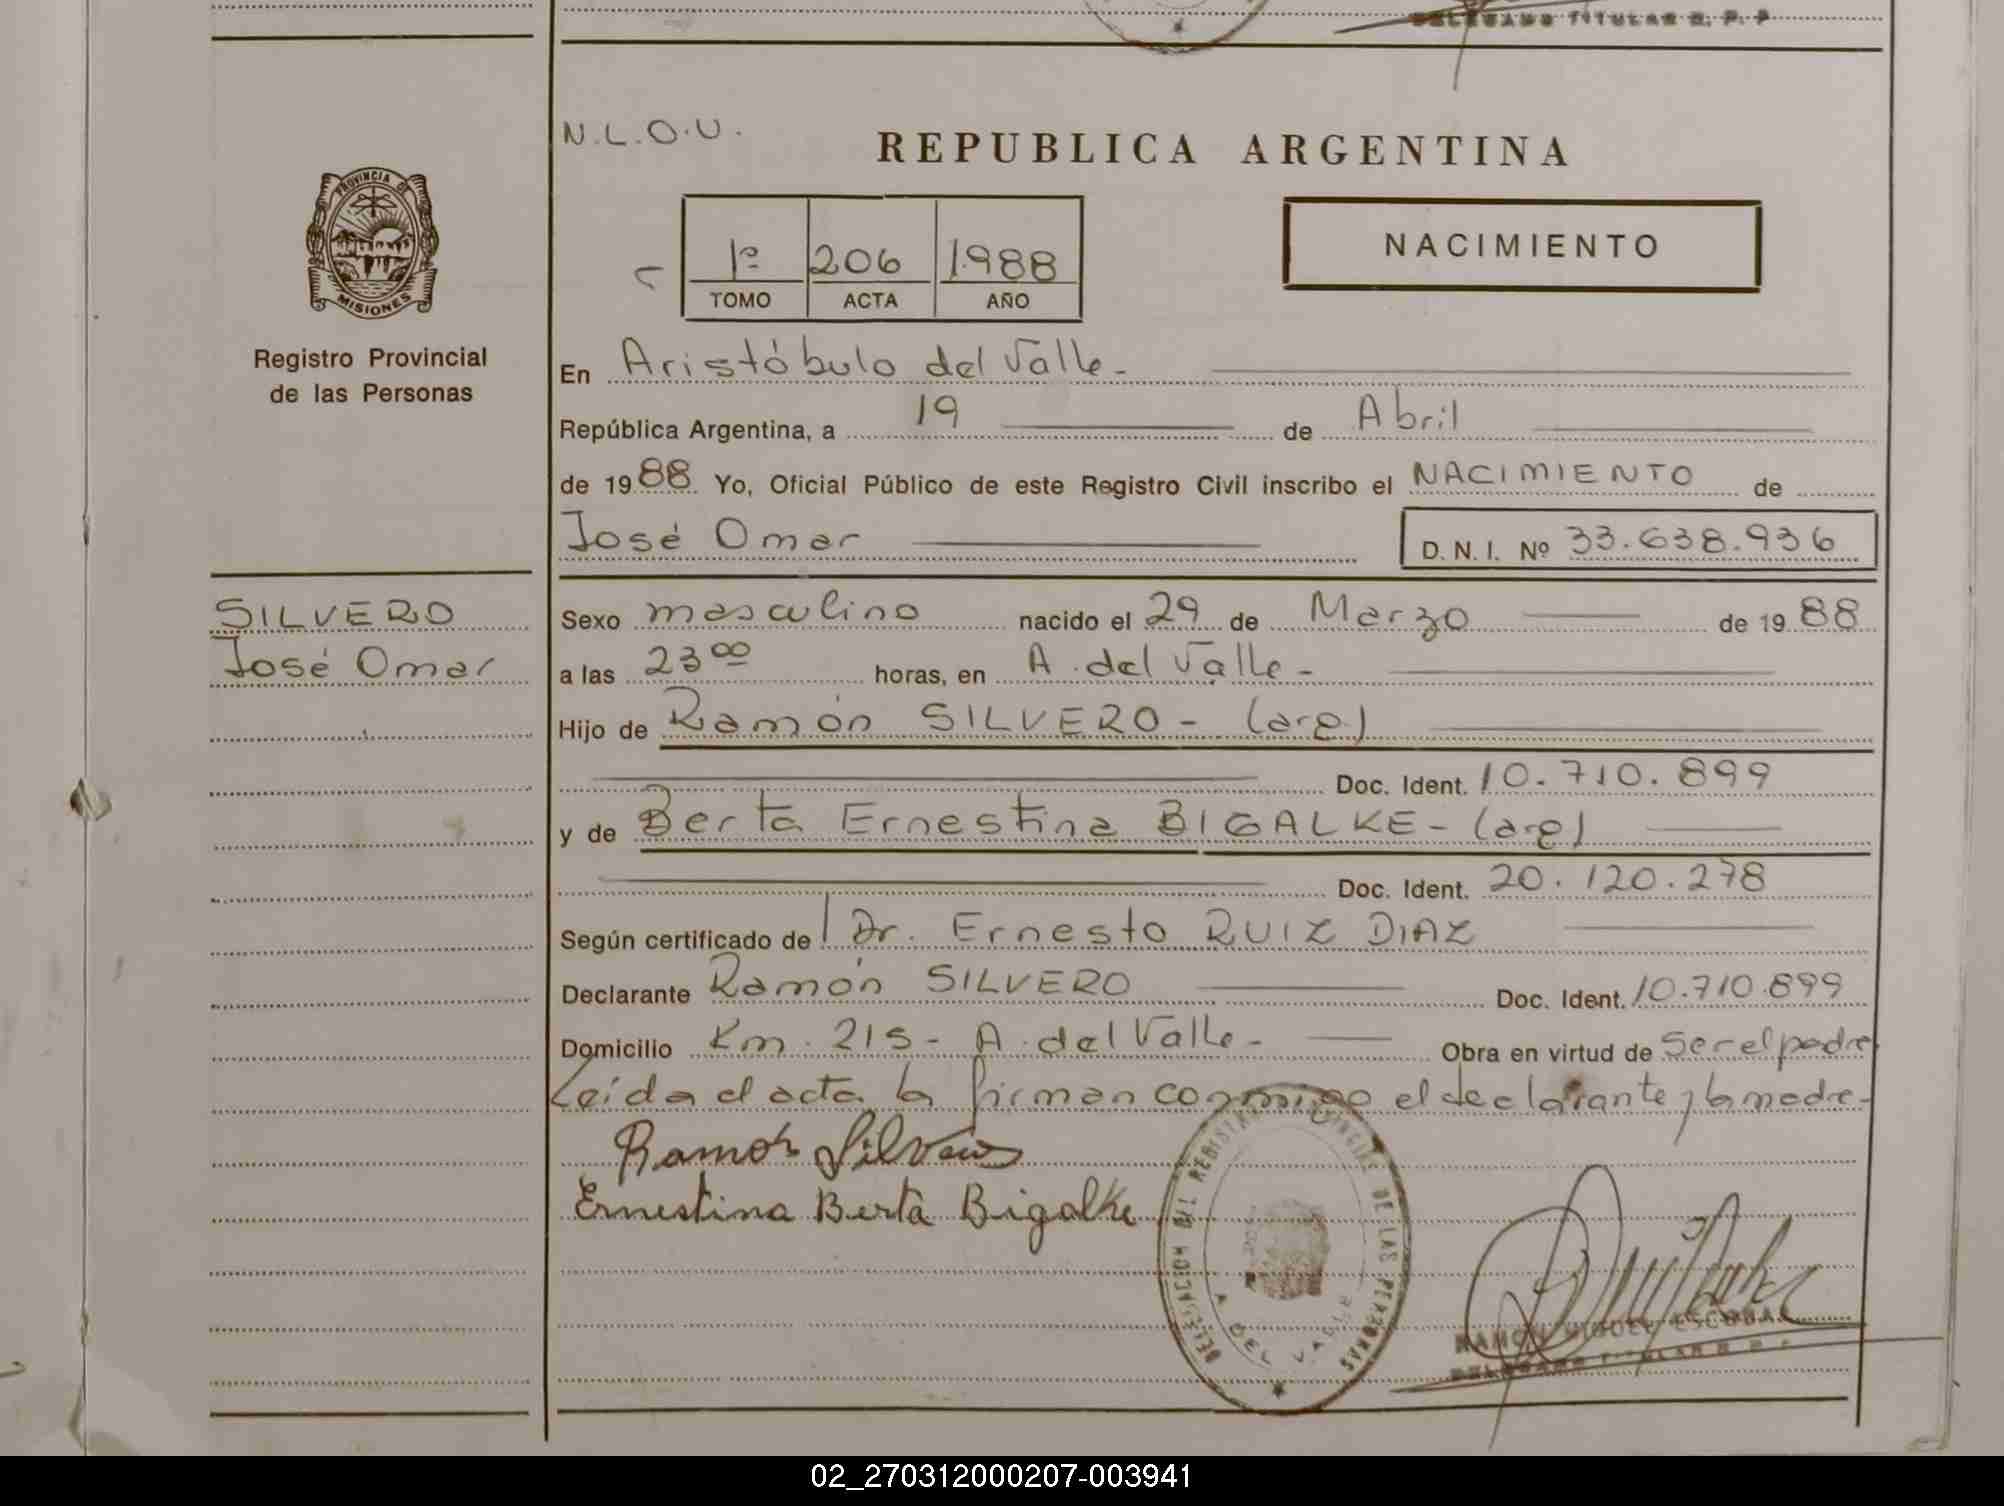 DELEGADO TITULAR R. P. P
N.L.O.U.
REPUBLICA ARGENTINA
PROVINCIA DE
MISIONES
1º 206 1.988
TOMO ACTA AÑO
NACIMIENTO
Registro Provincial
de las Personas
En Aristóbulo del Valle -
República Argentina, a 19 de Abril
de 1988 Yo, Oficial Público de este Registro Civil inscribo el NACIMIENTO de
José Omar D. N. I. Nº 33.638.936
SILVERO
José Omar
Sexo masculino nacido el 29 de Marzo de 1988
a las 23 00 horas, en A. del Valle -
Hijo de Ramón SILVERO - (arg)
Doc. Ident. 10.710.899
y de Berta Ernestina BIGALKE - (arg)
Doc. Ident. 20.120.278
Según certificado de Dr. Ernesto RUIZ DIAZ
Declarante Ramón SILVERO Doc. Ident. 10.710.899
Domicilio Km. 215 - A. del Valle - Obra en virtud de ser el padre
Leída el acta la firman conmigo el declarante y la madre -
Ramón Silvero
Ernestina Berta Bigalke
DELEGACION DEL REGISTRO PROVINCIAL DE LAS PERSONAS
A. DEL VALLE
RAMON MIGUEL ESCOBAR
DELEGADO TITULAR R. P. P
02_270312000207-003941